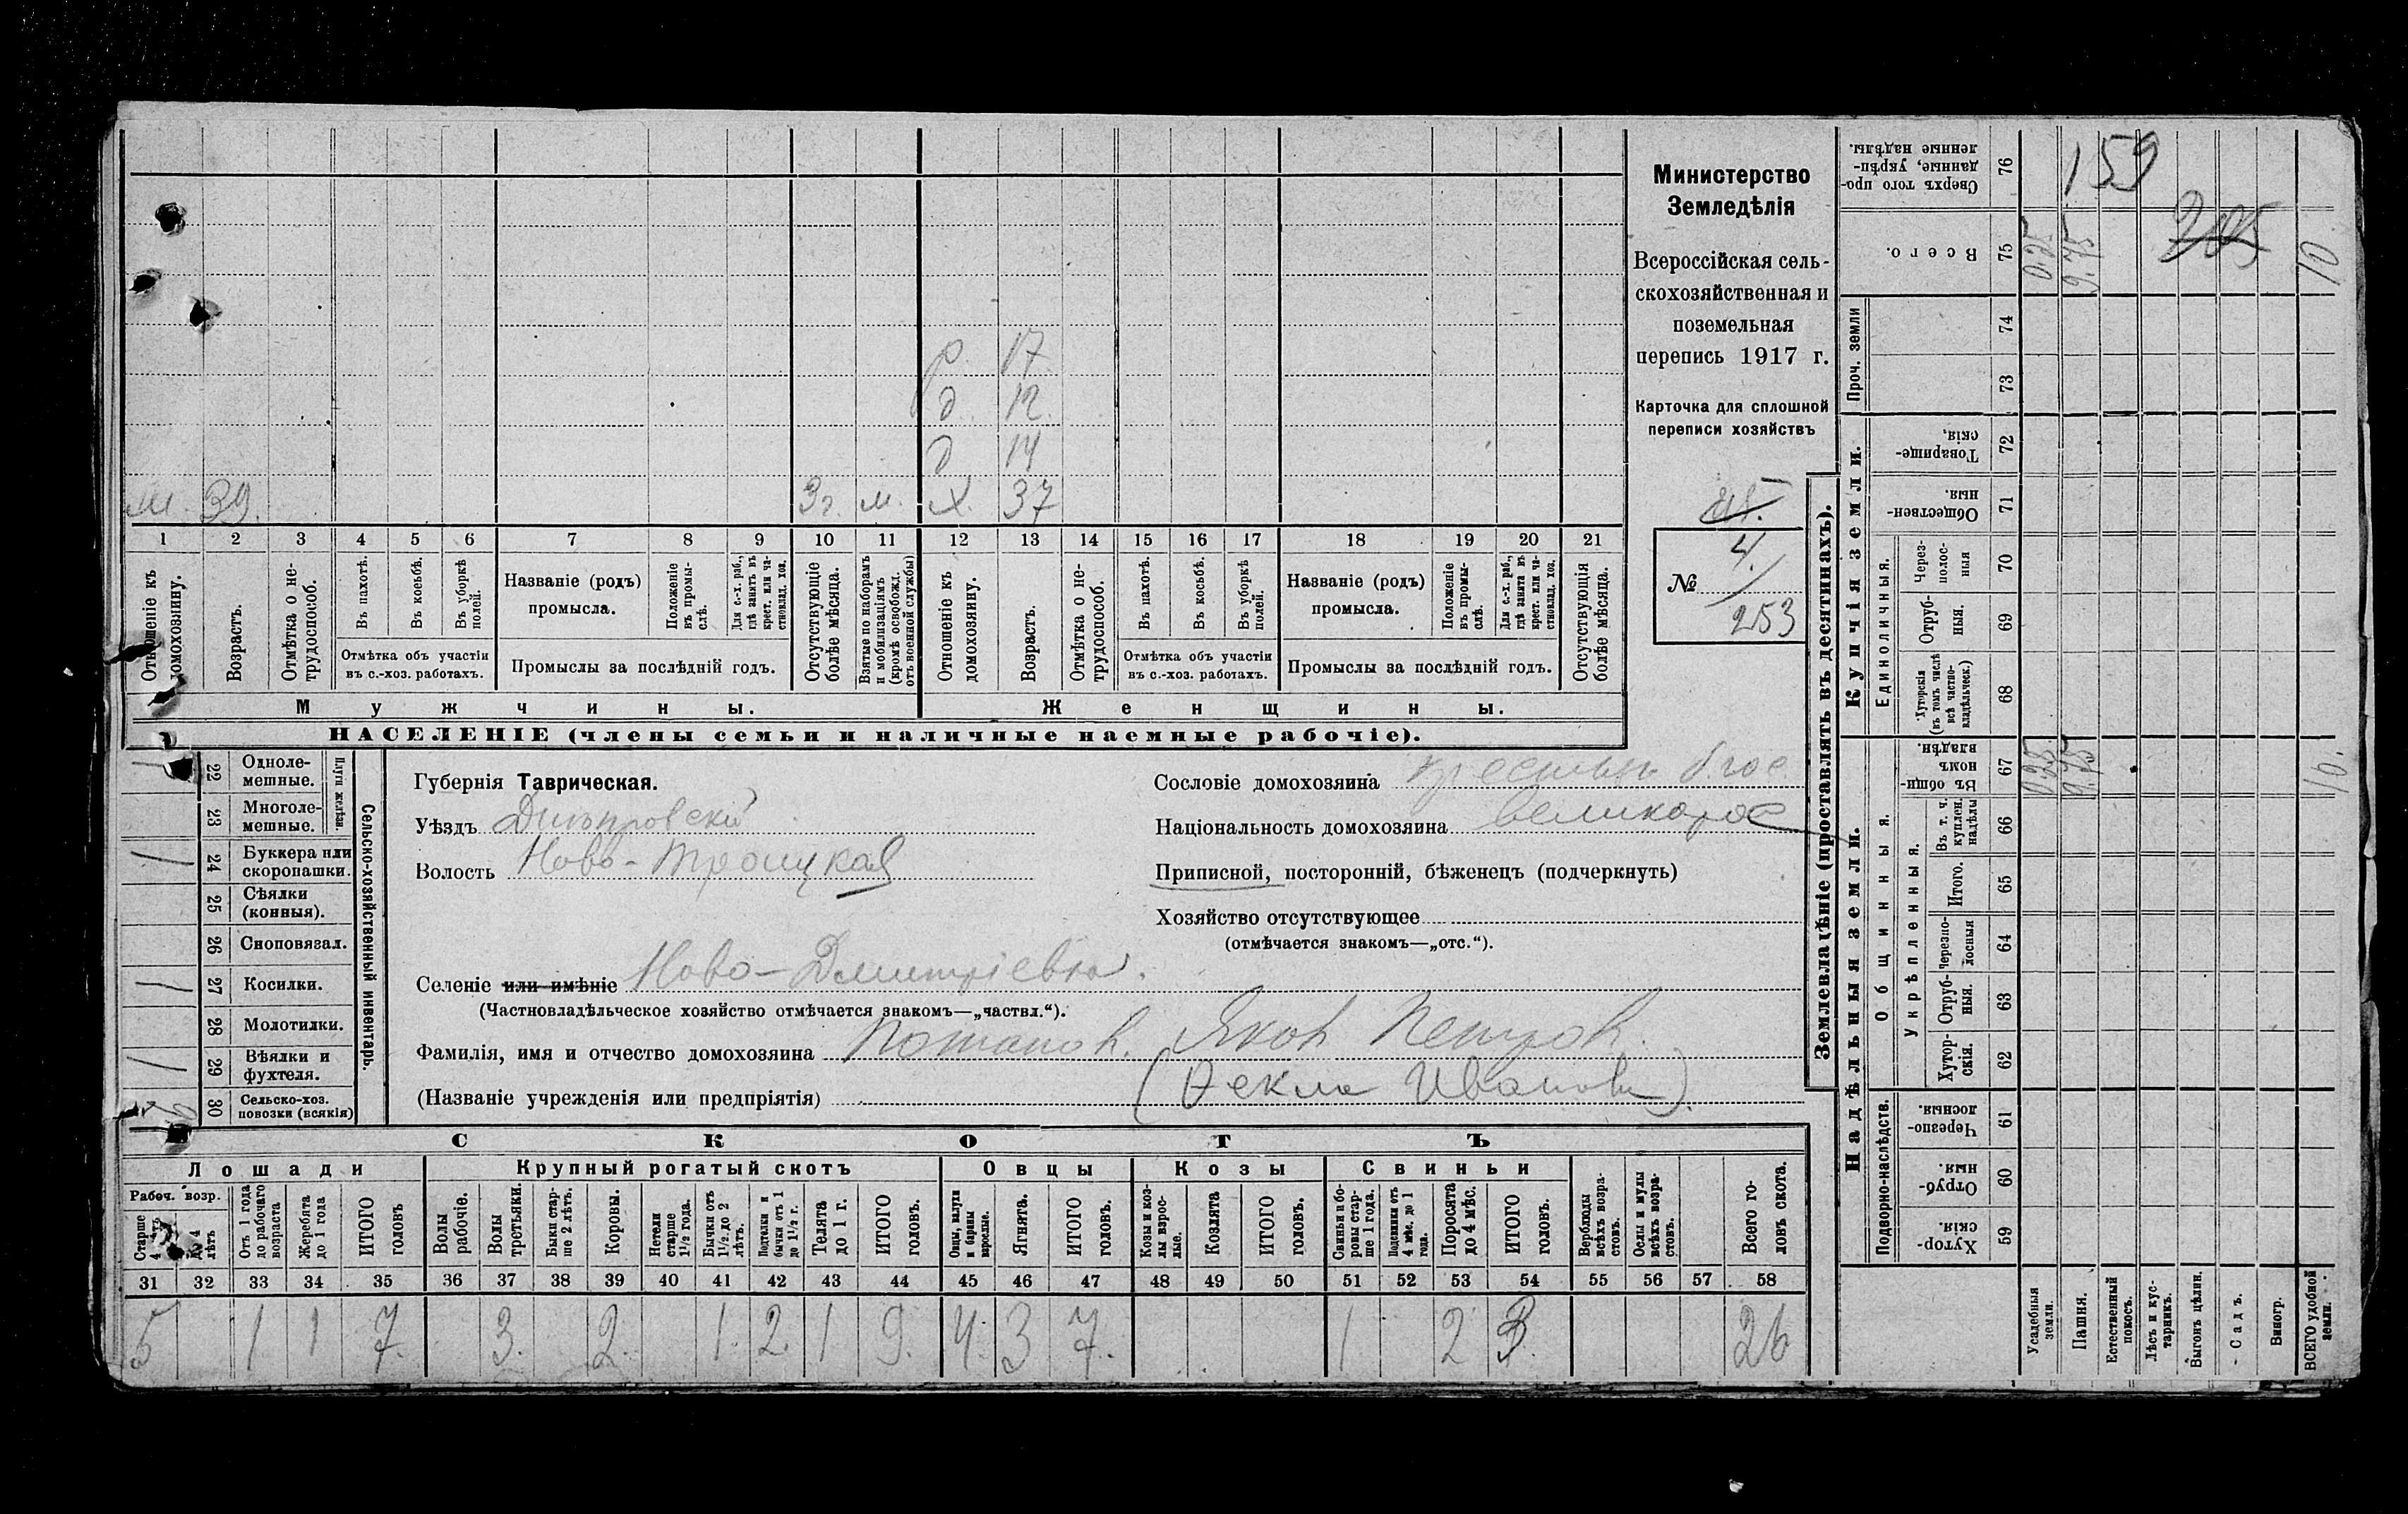 159
р. 17.
д. 12.
д 14
м. 39. 3г. м. х. 37
1 2 3 4 5 6 7 8 9 10 11 12 13 14 15 16 17 18 19 20 21
Отношеніе къ домохозяину.
Возрастъ.
Отмѣтка о не-
трудоспособ.
Въ пахотѣ.
Въ косьбѣ.
Въ уборкѣ
полей.
Отмѣтка объ участіи
въ с.-хоз. работахъ.
Названіе (родъ)
промысла.
Положеніе
въ промы-
слѣ.
Для с.-х. раб.,
гдѣ занятъ въ
крест. или ча-
стновлад. хоз.
Промыслы за послѣдній годъ.
Отсутствующіе
болѣе мѣсяца.
Взятые по наборамъ
и мобилизаціямъ
(кромѣ освобожд.
отъ военной службы)
Отношеніе къ
домохозяину.
Возрастъ.
Отмѣтка о не-
трудоспособ.
Въ пахотѣ.
Въ косьбѣ.
Въ уборкѣ
полей.
Отмѣтка объ участіи
въ с.-хоз. работахъ.
Названіе (родъ)
промысла.
Положеніе
въ промы-
слѣ.
Для с.-х. раб.,
гдѣ занята въ
крест. или ча-
стновлад. хоз.
Промыслы за послѣдній годъ.
Отсутствующія
болѣе мѣсяца.
Мужчины.
Женщины.
НАСЕЛЕНІЕ (члены семьи и наличные наемные рабочіе).
Министерство
Земледѣлія
Всероссійская сель-
скохозяйственная и
поземельная
перепись 1917 г.
Карточка для сплошной
переписи хозяйствъ
№ 4.
253
22 Одноле-
мешные.
23 Многоле-
мешные.
Плуги желѣзн.
24 Буккера или
скоропашки.
25 Сѣялки
(конныя).
26 Сноповязал.
27 Косилки.
28 Молотилки.
29 Вѣялки и
фухтеля.
30 Сельско-хоз.
повозки (всякія)
Сельско-хозяйственный инвентарь.
Губернія Таврическая.
Уѣздъ Днѣпровскій
Волость Ново-Троицкая
Селеніе или имѣніе Ново-Дмитріевка.
(Частновладѣльческое хозяйство отмѣчается знакомъ—„частвл.“).
Фамилія, имя и отчество домохозяина Потапов. Яков Петров.
(Названіе учрежденія или предпріятія) (Фекла Иванов).
Сословіе домохозяина крестьян. б. гос.
Національность домохозяина великорос
Приписной, посторонній, бѣженецъ (подчеркнуть)
Хозяйство отсутствующее
(отмѣчается знакомъ—„отс.“).
СКОТЪ
Лошади
Крупный рогатый скотъ
Овцы
Козы
Свиньи
Рабоч. возр.
Старше
4 лѣтъ
До 4
лѣтъ
Отъ 1 года
до рабочаго
возраста
Жеребята
до 1 года
ИТОГО
головъ
Волы
рабочіе.
Волы
третьяки.
Быки стар-
ше 2 лѣтъ.
Коровы.
Нетели
старше
1½ года.
Бычки отъ
1½ до 2
лѣтъ.
Подтелки и
бычки отъ 1
до 1½ г.
Телята
до 1 г.
ИТОГО
головъ.
Овцы, валухи
и бараны
взрослые.
Ягнята.
ИТОГО
головъ.
Козы и коз-
лы взрос-
лые.
Козлята
ИТОГО
головъ.
Свиньи бо-
ровы стар-
ше 1 года.
Подсвинки отъ
4 мѣс. до 1
года.
Поросята
до 4 мѣс.
ИТОГО
головъ.
Верблюды
всѣхъ возра-
стовъ.
Ослы и мулы
всѣхъ возра-
стовъ.
Всего го-
ловъ скота.
31 32 33 34 35 36 37 38 39 40 41 42 43 44 45 46 47 48 49 50 51 52 53 54 55 56 57 58
5 1 1 7. 3. 2. 1. 2. 1 9. 4. 3 7. 1 2 3. 26
Землевладѣніе (проставлять въ десятинахъ).
Надѣльныя земли.
Купчія земли.
Проч. земли
Подворно-наслѣдств.
Общинныя.
Укрѣпленныя.
Единоличныя.
Сверхъ того про-
данные, укрѣп-
ленные надѣлы.
76
Всего.
75
0.25
9.75
10
74
73
Товарище-
скія.
72
Обществен-
ныя.
71
Через-
полос-
ныя
70
Отруб-
ныя.
69
Хуторскія
(въ томъ числѣ
всѣ частно-
владѣльческ.)
68
Въ общин-
номъ
владѣн.
67
0.25
9.75
10.
Въ т. ч.
куплен.
надѣлы
66
Итого.
65
Черезпо-
лосныя
64
Отруб-
ныя.
63
Хутор-
скія.
62
Черезпо-
лосныя.
61
Отруб-
ныя.
60
Хутор-
скія.
59
Усадебныя
земли.
Пашня.
Естественный
покосъ.
Лѣсъ и кус-
тарникъ.
Выгонъ цѣлин.
Садъ.
Виногр.
ВСЕГО удобной
земли.